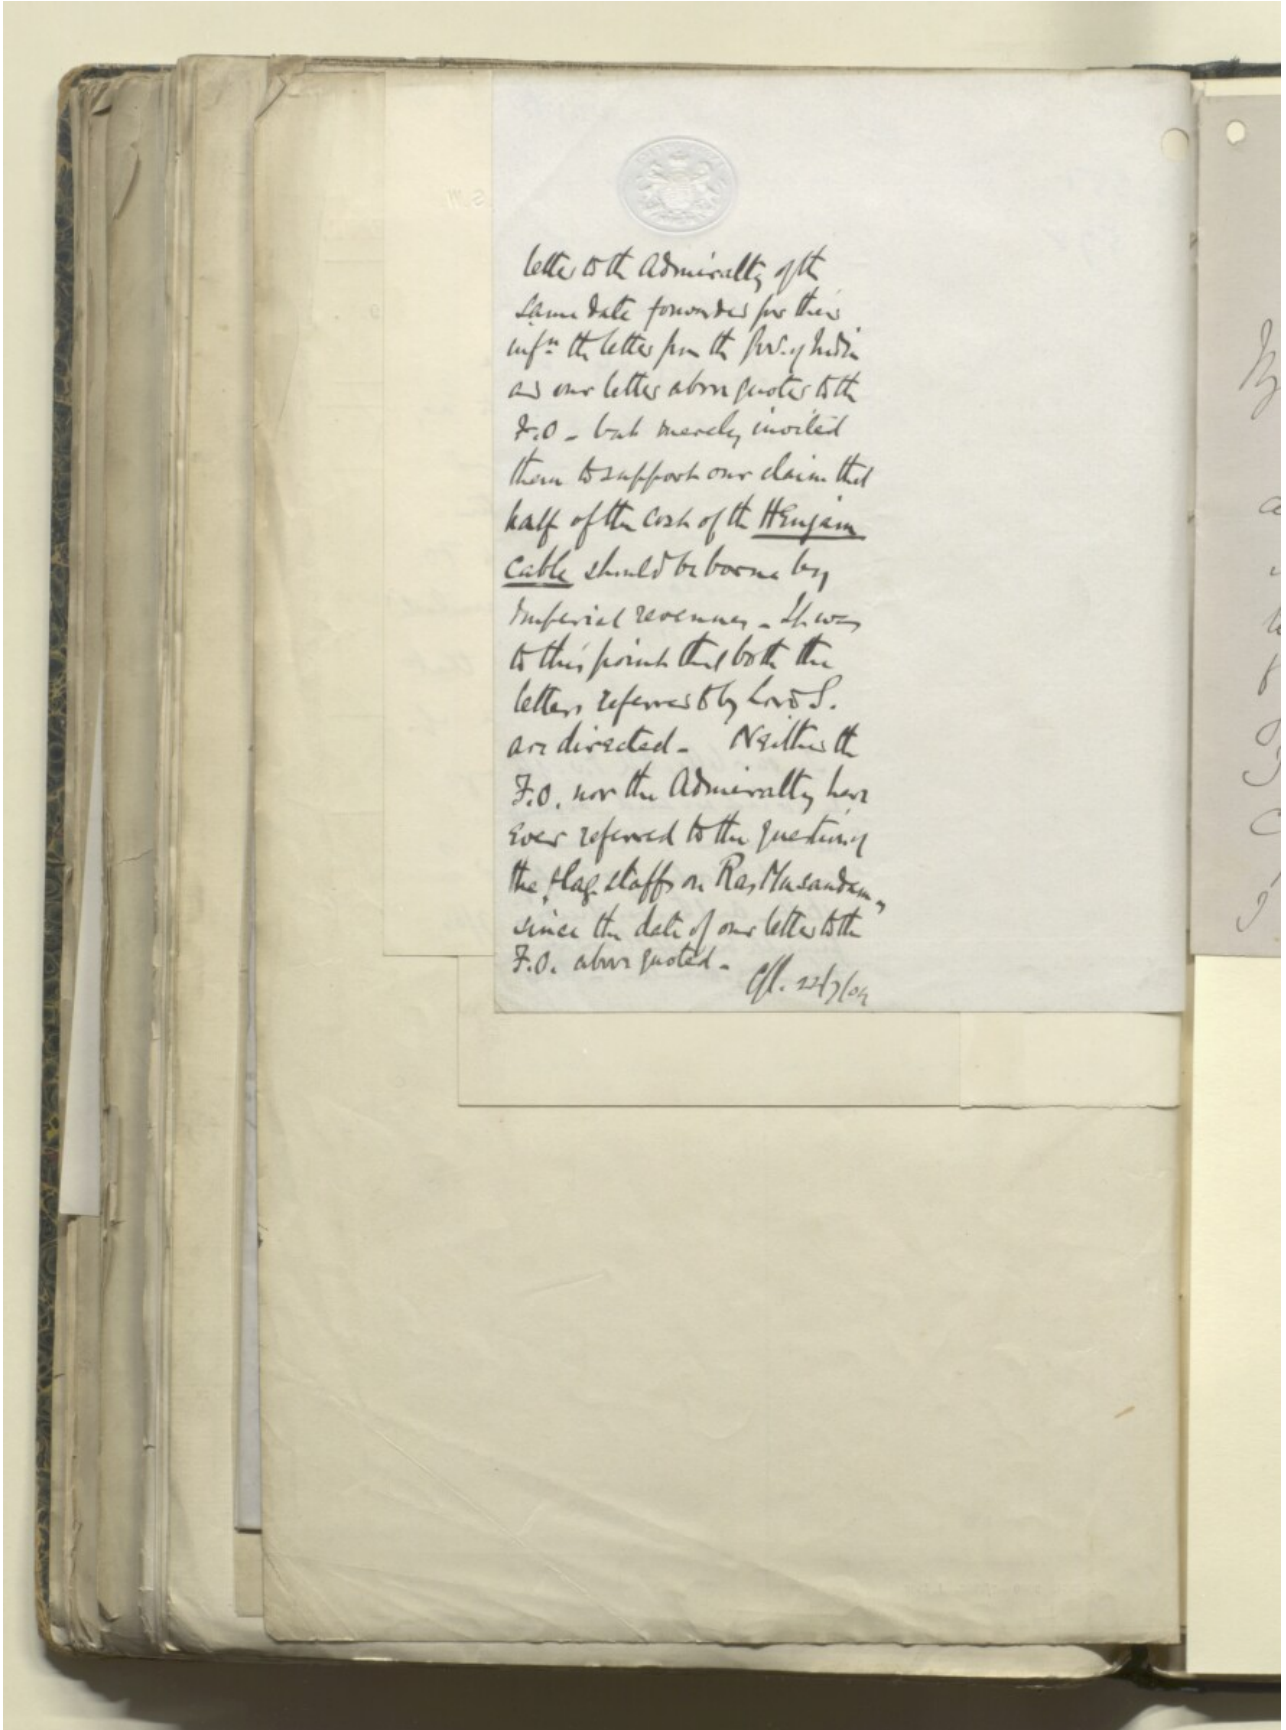 letter to the Admiralty of the
same date forwarded for their
infn. the letter from the Govt. of India
and our letter above quoted to the
F.O. - but merely invited
them to support our claim that
half of the cost of the Henjam
Cable should be borne by
Imperial revenues - It was
to this point that both the
letters referred to by Lord S.
are directed - Neither the
F.O. nor the Admiralty have
ever referred to the question of
the flagstaffs on Ras Musandam,
since the date of our letter to the
F.O. above quoted -
22/7/04